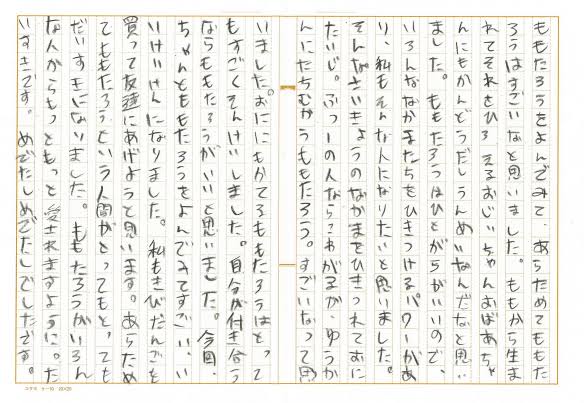 ももたろうをよんでみて、あらためてももた
ろうはすごいなと思いました。ももから生ま
れてそれをひろえるおじいちゃんおばあちゃ
んにもかんどうだしうんめいなんだなと思い
ました。ももたろうはひとがらがいいので、
いろんななかまたちをひきつけるパワーがあ
り、私もそんな人になりたいと思いました。
そんなさいきょうのなかまをひきつれておに
たいじ。ふつーの人ならこわがるが、ゆうか
んにたちむかうももたろう。すごいなって思
いました。おににもかてるももたろうはとって
もすごくそんけいしました。自分が付き合う
ならももたろうがいいと思いました。今回、
ちゃんとももたろうをよんでみてすごいいい
いけいけんになりました。私もきびだんごを
買って友達にあげようと思います。あらため
てももたろうという人間がとってもとっても
だいすきになりました。ももたろうがいろん
な人からもっともっと愛されますように。だ
いすきです。めでたしめでたしでしたです。
コクヨ ケ-10 20×20